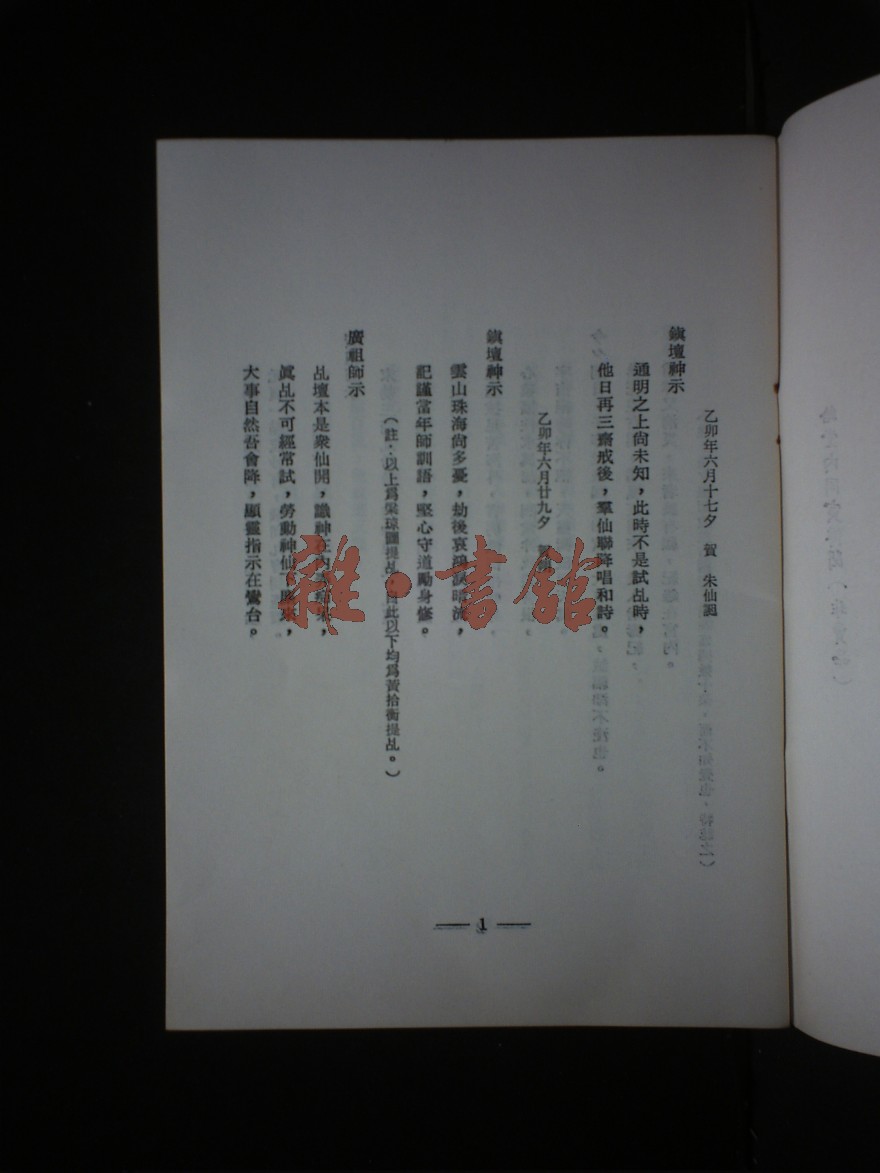 乙卯年六月十七夕　賀　朱仙誕
鎭壇神示
通明之上尙未知，此時不是試乩時，
他日再三齋戒後，羣仙聯降唱和詩。
乙卯年六月廿九夕
鎭壇神示
雲山珠海尙多憂，劫後哀鴻淚暗流，
記謹當年師訓語，堅心守道勵身修。
（註：以上爲梁琼圃提乩。自此以下均爲黃拾衡提乩。）
廣祖師示
乩壇本是衆仙開，識神在內
眞乩不可經常試，勞動神仙來，
大事自然吾會降，顯靈指示在鸞台。
1
雜·書館